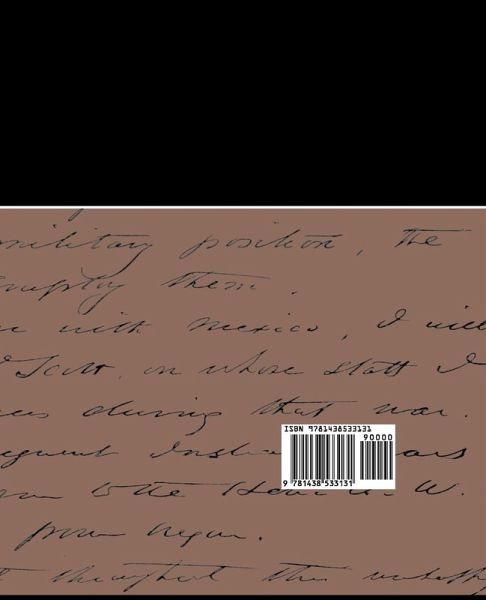 military position, the
employ them.
with Mexico, I will
Scott, on whose staff I
during that war.
to the Hon. W.
power began.
throughout this
ISBN 9781438533131
90000
9 781438 533131